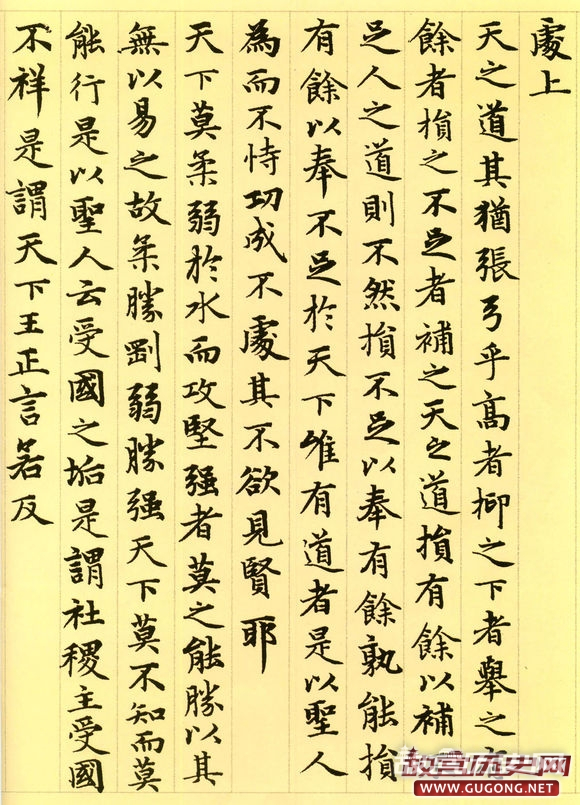 處上
天之道其猶張弓乎高者抑之下者舉之有
餘者損之不足者補之天之道損有餘以補
足人之道則不然損不足以奉有餘孰能損
有餘以奉不足於天下唯有道者是以聖人
為而不恃功成不處其不欲見賢耶
天下莫柔弱於水而攻堅强者莫之能勝以其
無以易之故柔勝剛弱勝强天下莫不知而莫
能行是以聖人云受國之垢是謂社稷主受國
不祥是謂天下王正言若反
故宫历史网
WWW.GUGONG.NET